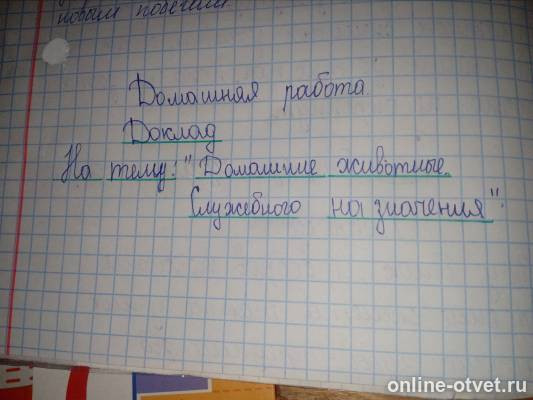 новым побегам
Домашная работа
Доклад
На тему: "Домашние животные.
Служебного назначения".
online-otvet.ru